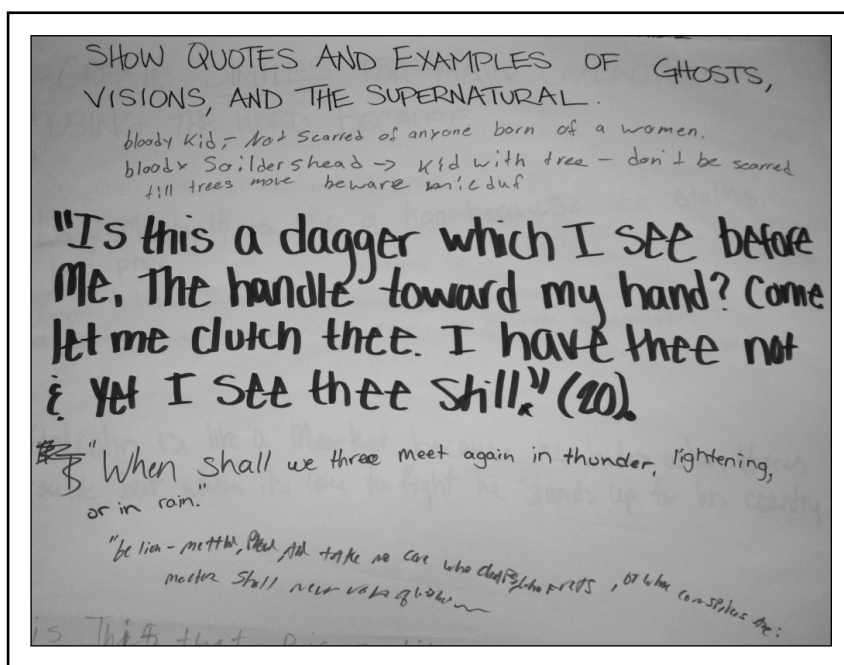 SHOW QUOTES AND EXAMPLES OF GHOSTS,
VISIONS, AND THE SUPERNATURAL.
bloody Kid, - Not Scarred of anyone born of a women.
bloody Soildershead -> Kid with tree - don't be scarred
till trees move beware micduf
"Is this a dagger which I see before
me, The handle toward my hand? Come
let me clutch thee. I have thee not
& yet I see thee still." (20).
"When shall we three meet again in thunder, lightening,
or in rain."
"be lion - mettled, Proud, And take no care who chafes, who frets, or where conspirers are:
shall never
is This that